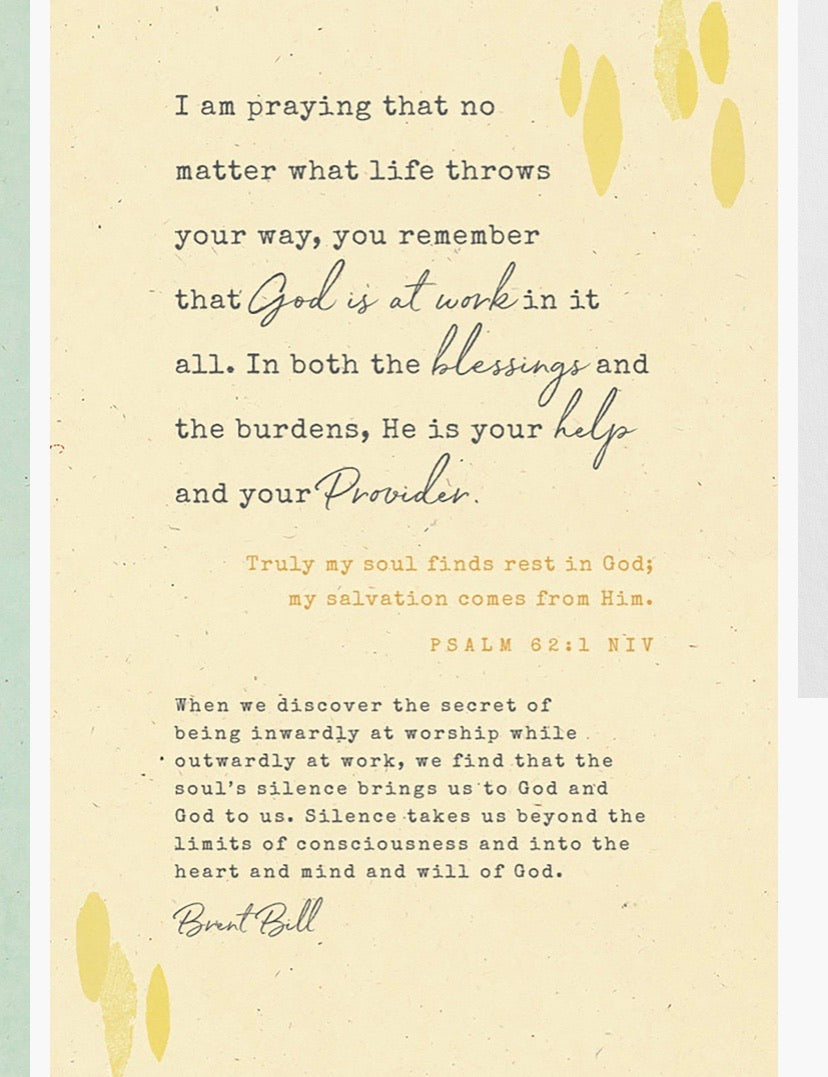 I am praying that no
matter what life throws
your way, you remember
that God is at work in it
all. In both the blessings and
the burdens, He is your help
and your Provider.
Truly my soul finds rest in God;
my salvation comes from Him.
PSALM 62:1 NIV
When we discover the secret of
being inwardly at worship while
outwardly at work, we find that the
soul's silence brings us to God and
God to us. Silence takes us beyond the
limits of consciousness and into the
heart and mind and will of God.
Brent Bill